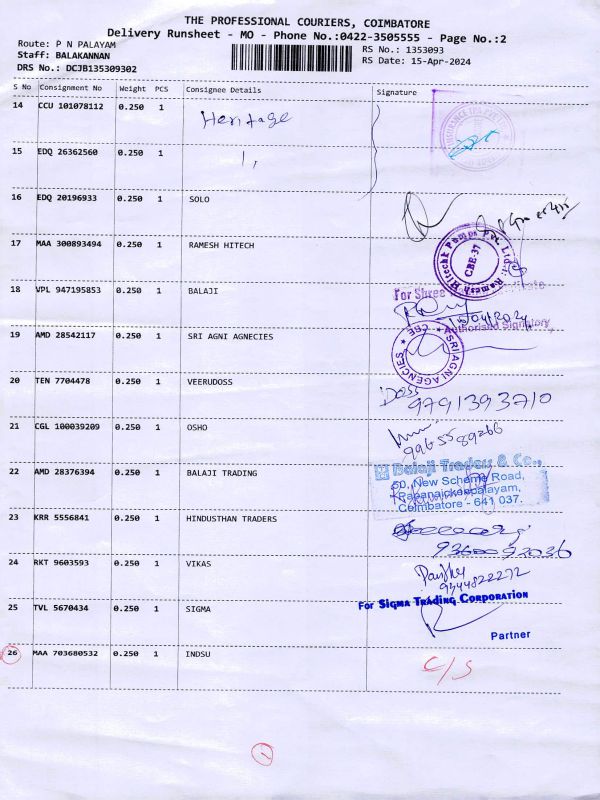 THE PROFESSIONAL COURIERS, COIMBATORE
Delivery Runsheet - MO - Phone No.:0422-3505555 - Page No.:2
Route: P N PALAYAM
Staff: BALAKANNAN
DRS No.: DCJB135309302
RS No.: 1353093
RS Date: 15-Apr-2024
S No Consignment No Weight PCS Consignee Details Signature
14 CCU 101078112 0.250 1 Heritage
15 EDQ 26362560 0.250 1 ,,
16 EDQ 20196933 0.250 1 SOLO
17 MAA 300893494 0.250 1 RAMESH HITECH
Ramesh Hitecht Pumps Pvt. Ltd.
CBE-37
18 VPL 947195853 0.250 1 BALAJI
For Shree
Authorised Signatory
19 AMD 28542117 0.250 1 SRI AGNI AGNECIES
SRI AGNI AGENCIES
CBE
20 TEN 7704478 0.250 1 VEERUDOSS Doss
9791393710
21 CGL 100039209 0.250 1 OSHO
9965589266
22 AMD 28376394 0.250 1 BALAJI TRADING
Balaji Traders & Co.,
50, New Scheme Road,
Papanaickenpalayam,
Coimbatore - 641 037.
23 KRR 5556841 0.250 1 HINDUSTHAN TRADERS
24 RKT 9603593 0.250 1 VIKAS
9344822272
25 TVL 5670434 0.250 1 SIGMA
For SIGMA TRADING CORPORATION
Partner
26 MAA 703680532 0.250 1 INDSU C/S
1